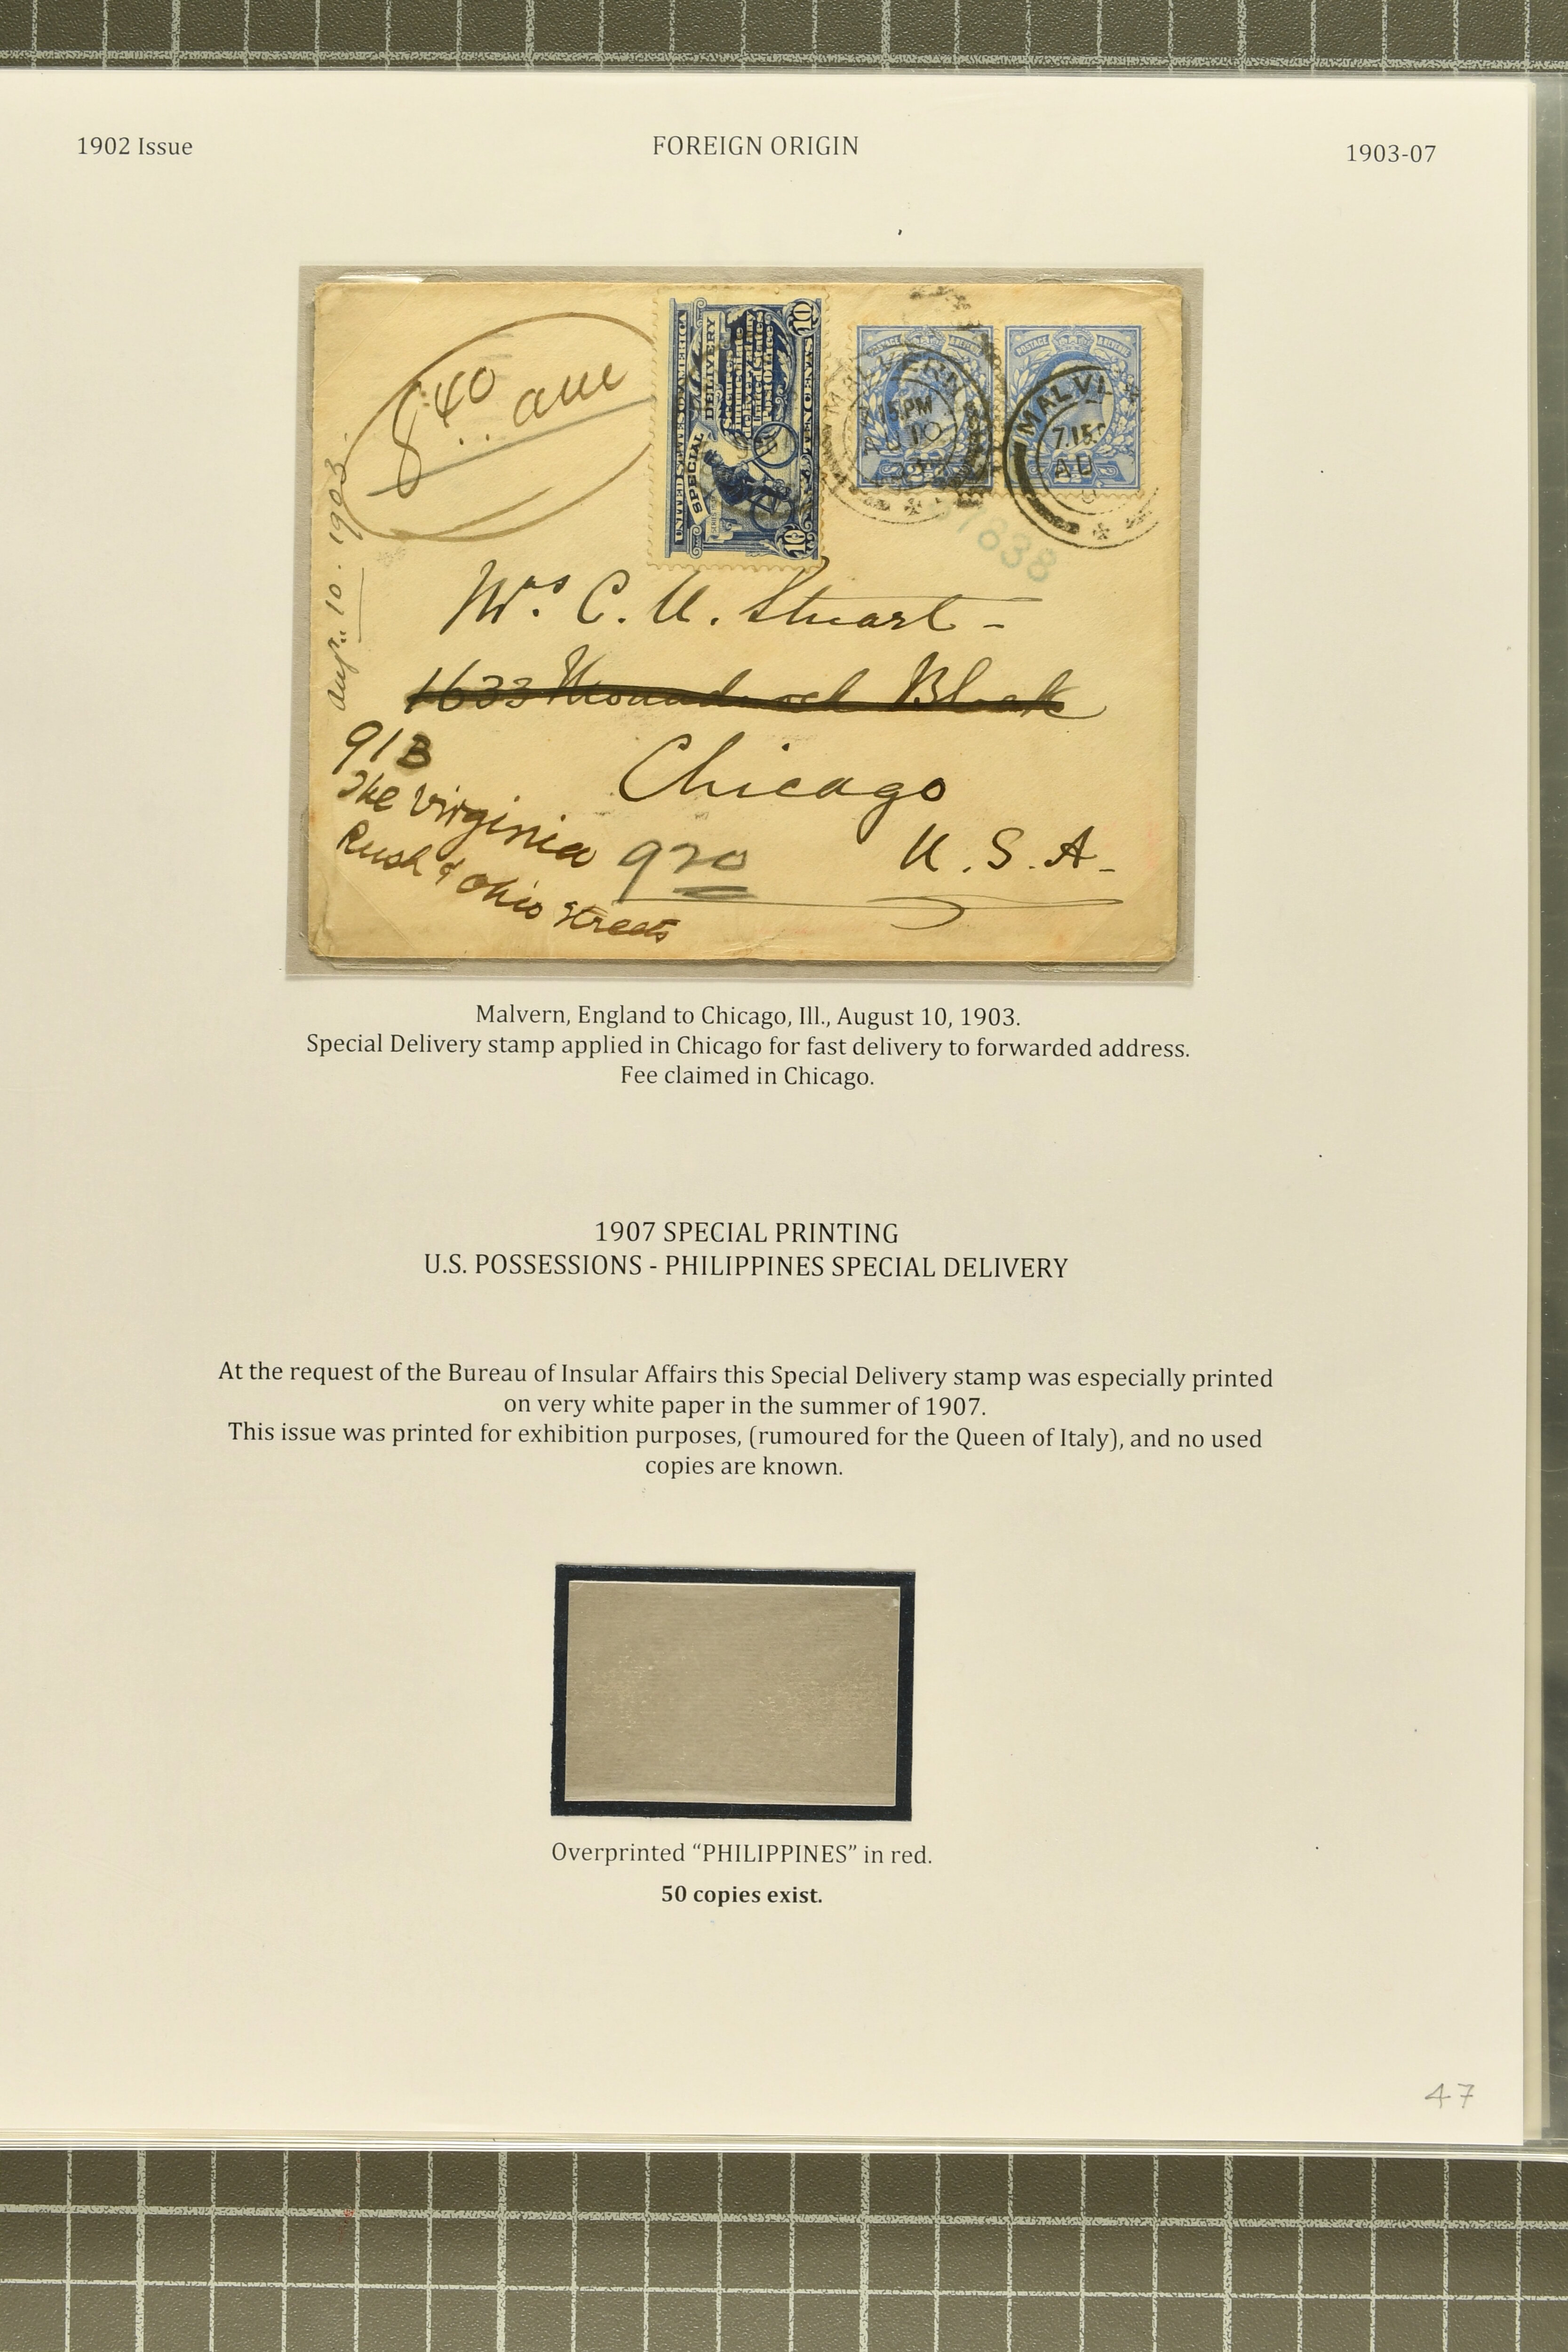 1902 Issue
FOREIGN ORIGIN
1903-07
8 40 am
Aug. 10. 1903.
UNITED STATES OF AMERICA
SPECIAL DELIVERY
TEN CENTS
10
10
POSTAGE & REVENUE
POSTAGE & REVENUE
MALVERN
15.PM
AU 10
MALV
7.15
AU
1638
Mrs. C. U. Stuart -
1633 Monadnock Block
91B
Chicago
The Virginia
Rush & Ohio Streets
920
U. S. A.
Malvern, England to Chicago, Ill., August 10, 1903.
Special Delivery stamp applied in Chicago for fast delivery to forwarded address.
Fee claimed in Chicago.
1907 SPECIAL PRINTING
U.S. POSSESSIONS - PHILIPPINES SPECIAL DELIVERY
At the request of the Bureau of Insular Affairs this Special Delivery stamp was especially printed
on very white paper in the summer of 1907.
This issue was printed for exhibition purposes, (rumoured for the Queen of Italy), and no used
copies are known.
Overprinted “PHILIPPINES” in red.
50 copies exist.
47